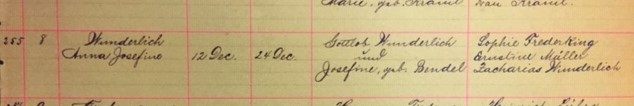 Marie, geb. Kraml. Ivan Kraml.
285 8 Wunderlich Gottlob Wunderlich Sophie Frederking
Anna Josefine 12 Dec. 24 Dec. und Ernstine Müller
Josefine, geb. Bendel Zacharias Wunderlich